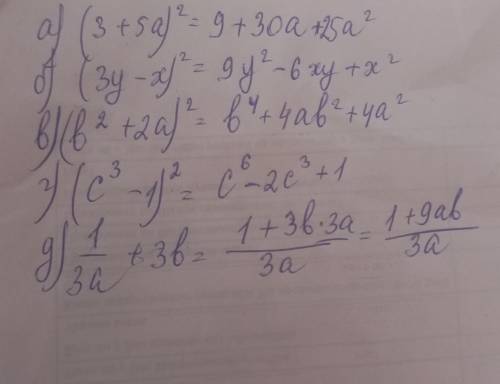 а) (3 + 5a)² = 9 + 30a + 25a²
б) (3y - x)² = 9y² - 6xy + x²
в) (b² + 2a)² = b⁴ + 4ab² + 4a²
г) (c³ - 1)² = c⁶ - 2c³ + 1
д) 1/3a + 3b = (1 + 3b·3a)/3a = (1 + 9ab)/3a